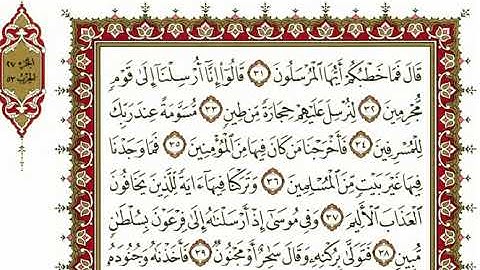 الجزء ٢٧
الحزب ٥٣
قَالَ فَمَا خَطْبُكُمْ أَيُّهَا ٱلْمُرْسَلُونَ ٣١ قَالُوٓا۟ إِنَّآ أُرْسِلْنَآ إِلَىٰ قَوْمٍ
مُّجْرِمِينَ ٣٢ لِنُرْسِلَ عَلَيْهِمْ حِجَارَةً مِّن طِينٍ ٣٣ مُّسَوَّمَةً عِندَ رَبِّكَ
لِلْمُسْرِفِينَ ٣٤ فَأَخْرَجْنَا مَن كَانَ فِيهَا مِنَ ٱلْمُؤْمِنِينَ ٣٥ فَمَا وَجَدْنَا
فِيهَا غَيْرَ بَيْتٍ مِّنَ ٱلْمُسْلِمِينَ ٣٦ وَتَرَكْنَا فِيهَآ ءَايَةً لِّلَّذِينَ يَخَافُونَ
ٱلْعَذَابَ ٱلْأَلِيمَ ٣٧ وَفِى مُوسَىٰٓ إِذْ أَرْسَلْنَٰهُ إِلَىٰ فِرْعَوْنَ بِسُلْطَٰنٍ
مُّبِينٍ ٣٨ فَتَوَلَّىٰ بِرُكْنِهِۦ وَقَالَ سَٰحِرٌ أَوْ مَجْنُونٌ ٣٩ فَأَخَذْنَٰهُ وَجُنُودَهُۥ